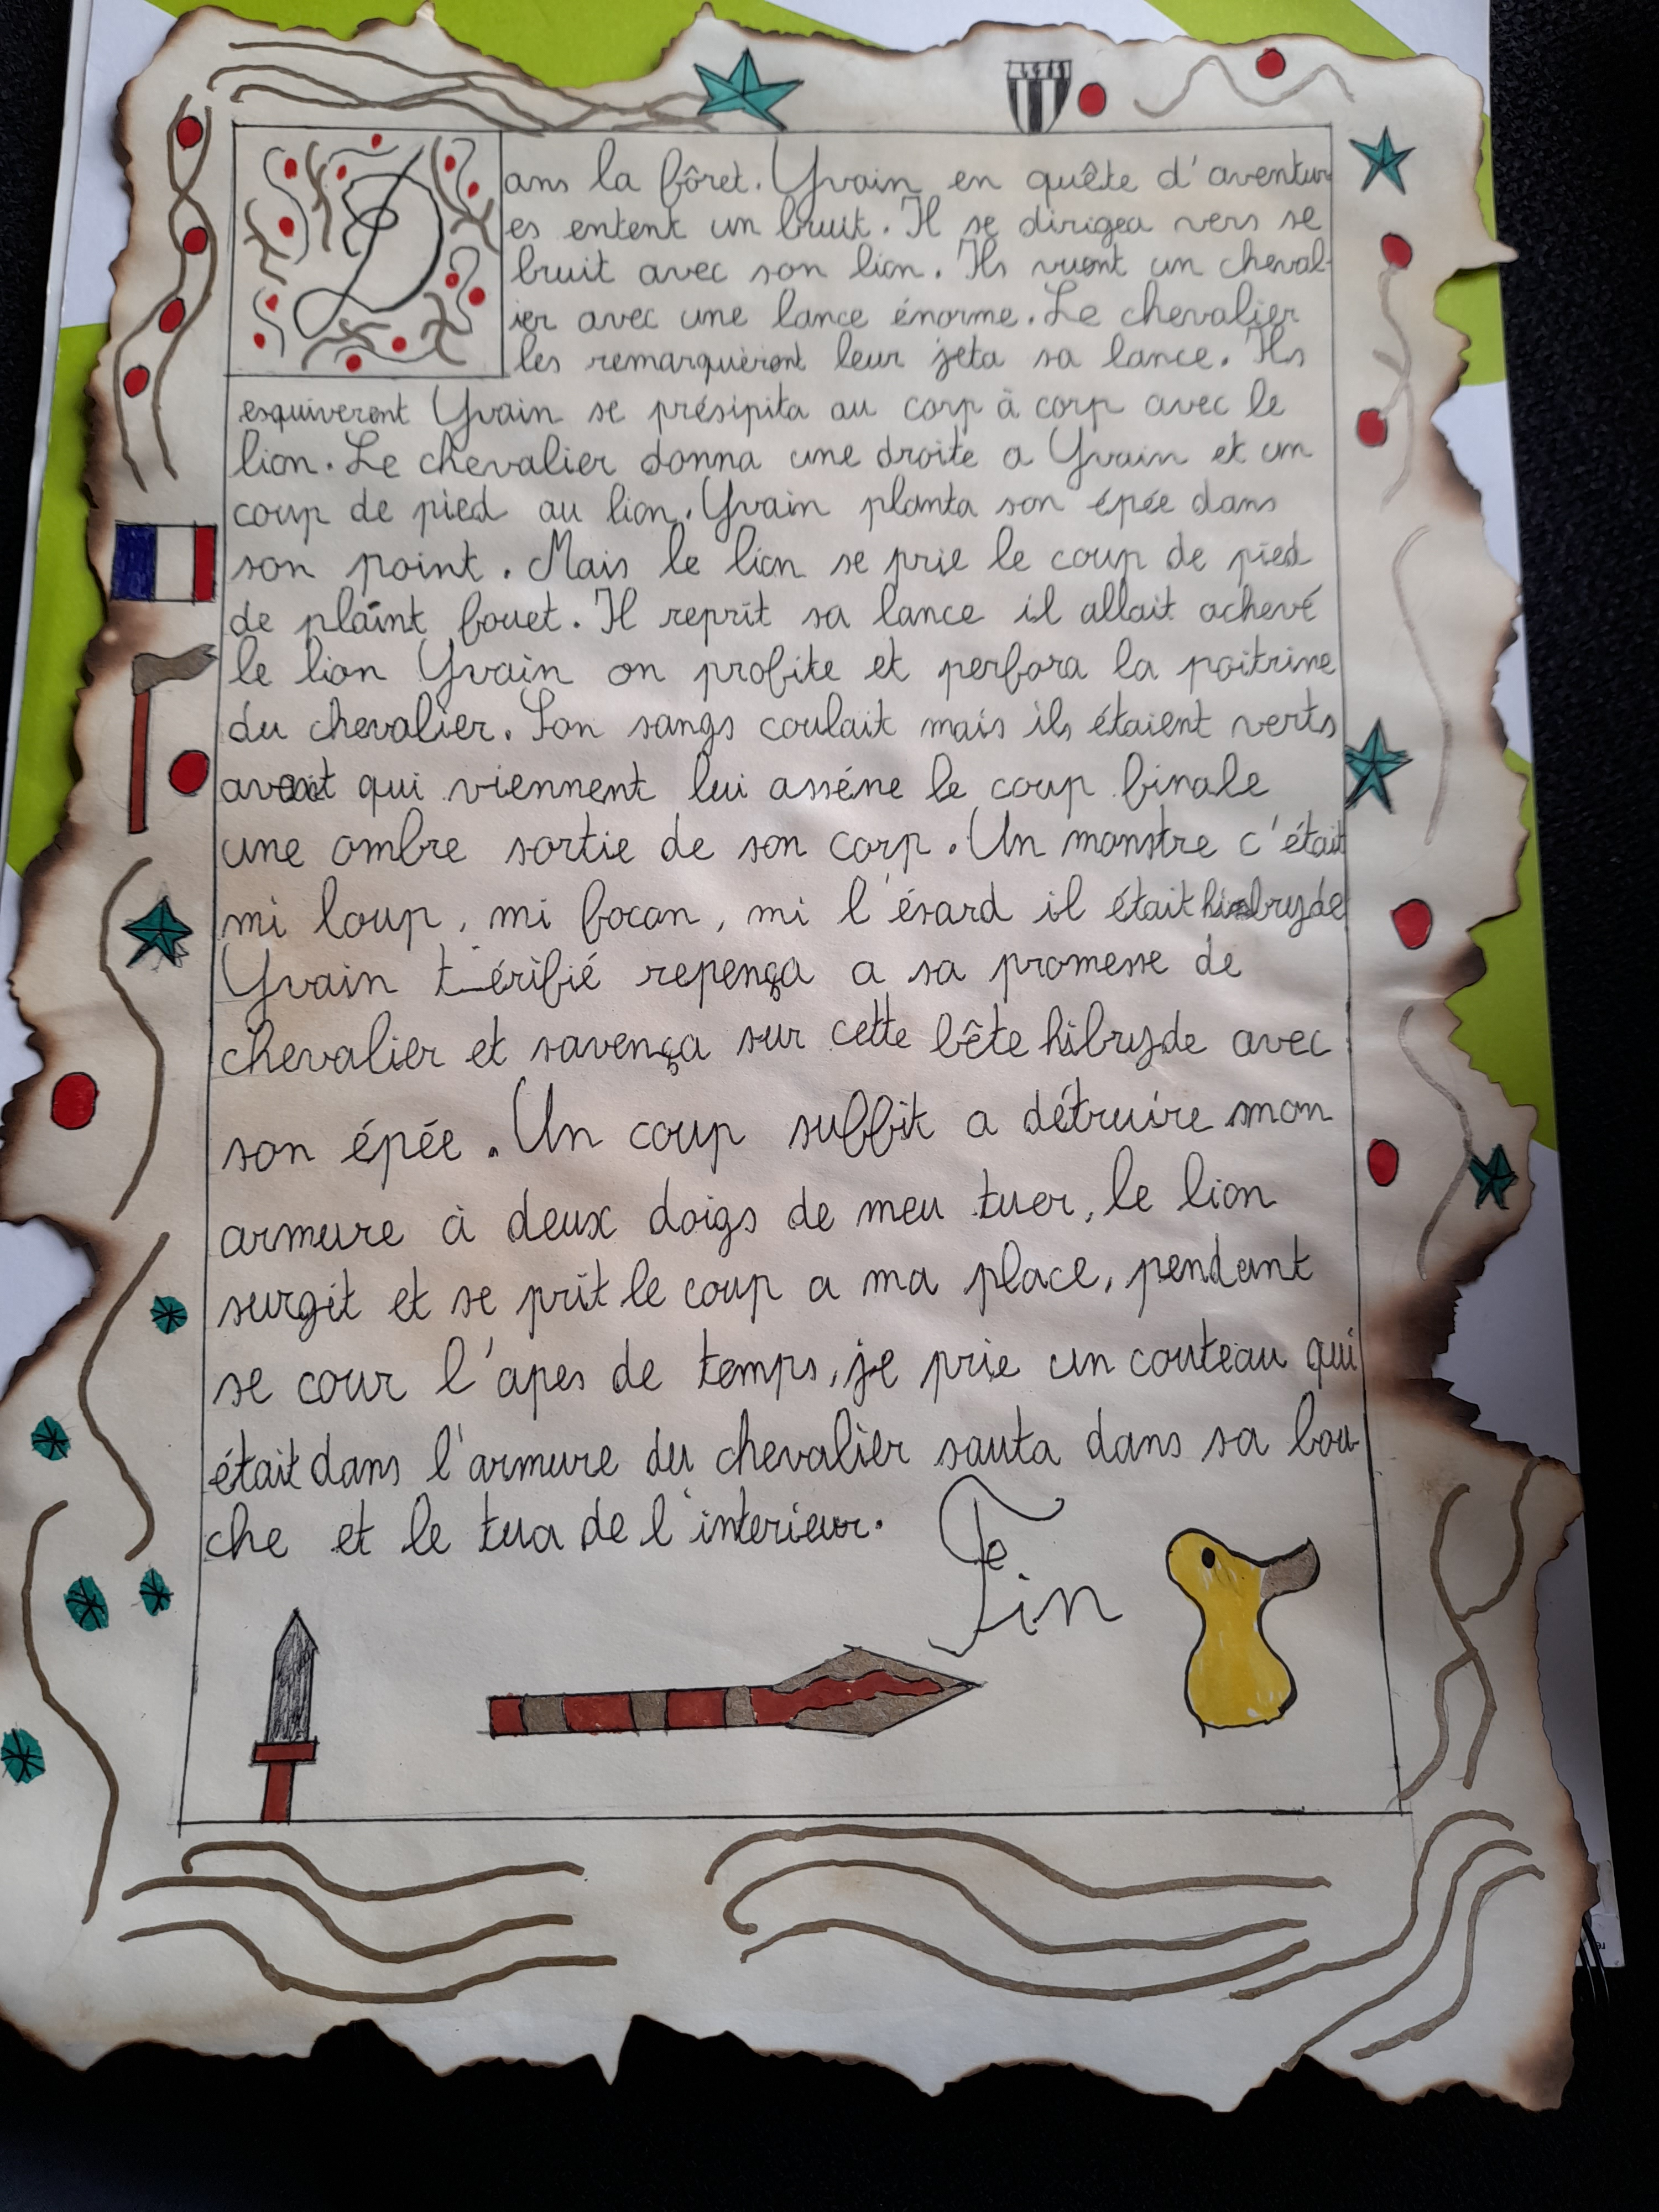 Dans la fôret. Yvain en quête d'aventur
es entent un bruit. Il se dirigea vers se
bruit avec son lion. Ils vuent un cheval-
ier avec une lance énorme. Le chevalier
les remarquèront leur jeta sa lance. Ils
esquiveront Yvain se présipita au corp à corp avec le
lion. Le chevalier donna une droite a Yvain et un
coup de pied au lion. Yvain planta son épée dans
son point. Mais le lion se prie le coup de pied
de plaint fouet. Il reprit sa lance il allait achevé
le lion Yvain on profite et perfora la poitrine
du chevalier. Son sangs coulait mais ils étaient verts
avant qui viennent lui asséne le coup finale
une ombre sortie de son corp. Un monstre c'était
mi loup, mi focan, mi l'ésard il était hibryde
Yvain térifié repença a sa promesse de
chevalier et savença sur cette bête hibryde avec
son épée. Un coup suffit a détruire mon
armure à deux doigs de meu tuer, le lion
surgit et se prit le coup a ma place, pendant
se cour l'apes de temps, je prie un couteau qui
était dans l'armure du chevalier sauta dans sa bou-
che et le tua de l'interieur.
Fin